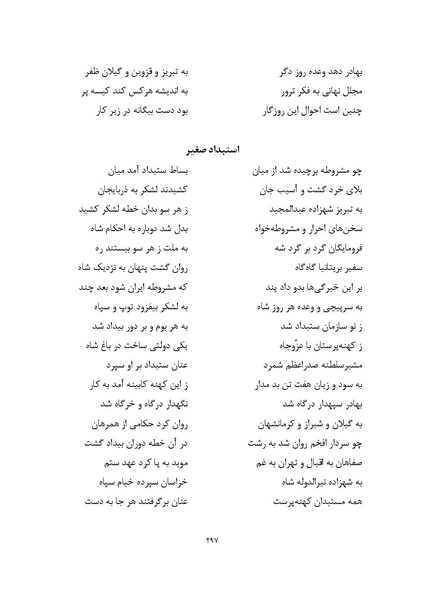 بهادر دهد وعده روز دگر به تبریز و قزوین و گیلان ظفر
مجلل نهانی به فکر ترور به اندیشه هرکس کند کیسه پر
چنین است احوال این روزگار بود دست بیگانه در زیر کار
استبداد صغیر
چو مشروطه برچیده شد از میان بساط ستبداد آمد میان
بلای خرد گشت و آسیب جان کشیدند لشکر به ذربایجان
به تبریز شهزاده عبدالمجید ز هر سو بدان خطه لشکر کشید
سخن‌های احرار و مشروطه‌خواه بدل شد دوباره به احکام شاه
فرومایگان گرد بر گرد شه به ملت ز هر سو ببستند ره
سفیر بریتانیا گاه‌گاه روان گشت پنهان به نزدیک شاه
بر این خیرگی‌ها بدو داد پند که مشروطه ایران شود بعد چند
به سرپیچی و وعده هر روز شاه به لشکر بیفزود توپ و سپاه
ز نو سازمان ستبداد شد به هر بوم و بر دور بیداد شد
ز کهنه‌پرستان با عزّوجاه یکی دولتی ساخت در باغ شاه
مشیرسلطنه صدراعظم شمرد عنان ستبداد بر او سپرد
به سود و زیان هفت تن بد مدار ز این کهنه کابینه آمد به کار
بهادر سپهدار درگاه شد نگهدار درگاه و خرگاه شد
به گیلان و شیراز و کرمانشهان روان کرد حکامی از همرهان
چو سردار افخم روان شد به رشت در آن خطه دوران بیداد گشت
صفاهان به اقبال و تهران به غم موید به پا کرد عهد ستم
به شهزاده نیرالدوله شاه خراسان سپرده خیام سپاه
همه مستبدان کهنه‌پرست عنان برگرفتند هر جا به دست
۲۹۷